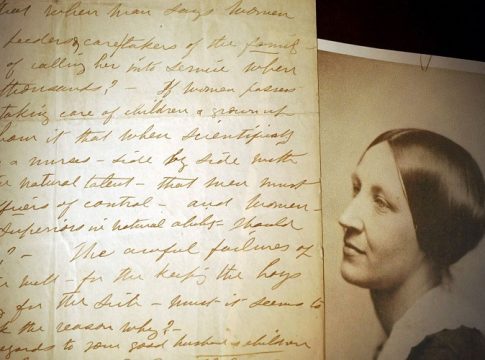 that when man says women
feeders & caretakers of the family -
of calling her into service when
thousands? - If women possess
taking care of children & grown up
how it that when scientifically
a nurse - side by side with
natural talent - that men must
officers of control - and women -
superiors in natural ability - should
? - The awful failures of
well - for the keeping the boys
for the sick - must it seems to
the reason why? -
regards to your good husband & children